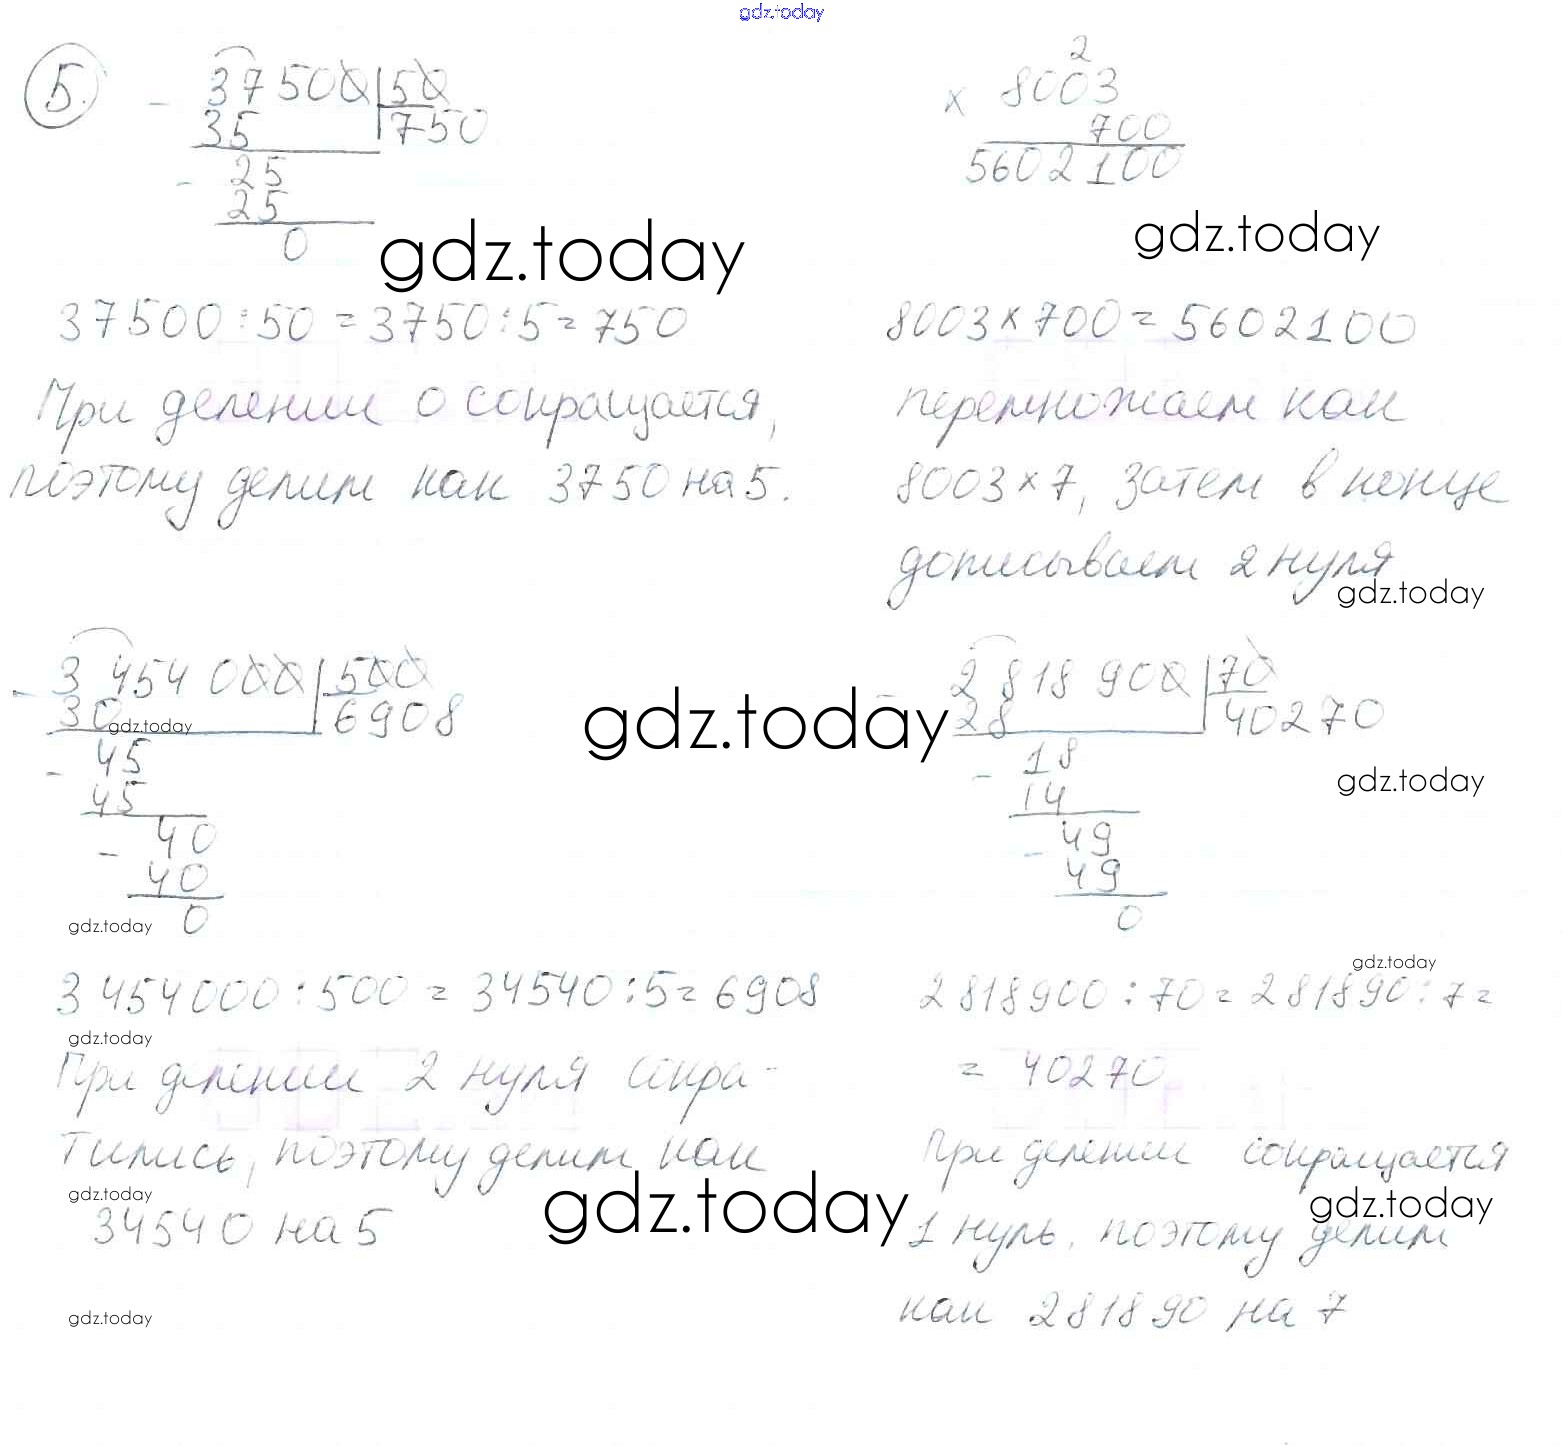 gdz.today
5.
- 37500 | 50
35 | 750
- 25
25
0
gdz.today
37500 : 50 = 3750 : 5 = 750
При делении 0 сокращается,
поэтому делим как 3750 на 5.
2
× 8003
700
5602100
gdz.today
8003 × 700 = 5602100
перемножаем как
8003 × 7, затем в конце
дописываем 2 нуля
gdz.today
- 3 454 000 | 500
30 | 6908
gdz.today
- 45
45
- 40
40
0
gdz.today
gdz.today
3 454 000 : 500 = 34540 : 5 = 6908
gdz.today
При делении 2 нуля сокра-
тились, поэтому делим как
gdz.today
34540 на 5
gdz.today
gdz.today
- 2 818 900 | 70
28 | 40270
gdz.today
- 18
14
- 49
49
0
gdz.today
2818900 : 70 = 281890 : 7 =
= 40270
При делении сокращается
gdz.today
1 нуль, поэтому делим
как 281890 на 7